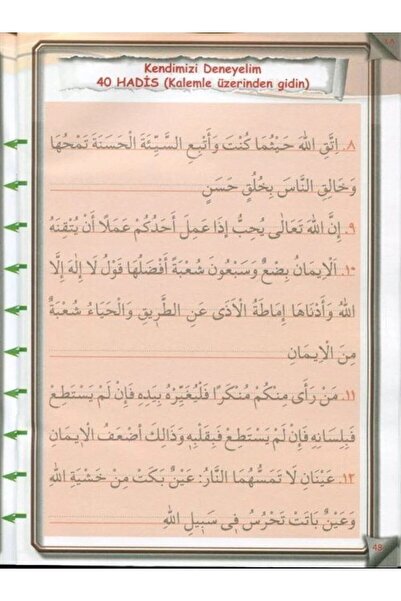 Kendimizi Deneyelim
40 HADİS (Kalemle üzerinden gidin)
٨. اِتَّقِ اللّٰهَ حَيْثُمَا كُنْتَ وَأَتْبِعِ السَّيِّئَةَ الْحَسَنَةَ تَمْحُهَا
وَخَالِقِ النَّاسَ بِخُلُقٍ حَسَنٍ
٩. إِنَّ اللّٰهَ تَعَالَى يُحِبُّ إِذَا عَمِلَ أَحَدُكُمْ عَمَلًا أَنْ يُتْقِنَهُ
١٠. اَلْاِيمَانُ بِضْعٌ وَسَبْعُونَ شُعْبَةً أَفْضَلُهَا قَوْلُ لَا إِلٰهَ إِلَّا
اللّٰهُ وَأَدْنَاهَا إِمَاطَةُ الْأَذَى عَنِ الطَّرِيقِ وَالْحَيَاءُ شُعْبَةٌ
مِنَ الْاِيمَانِ
١١. مَنْ رَأَى مِنْكُمْ مُنْكَرًا فَلْيُغَيِّرْهُ بِيَدِهِ فَإِنْ لَمْ يَسْتَطِعْ
فَبِلِسَانِهِ فَإِنْ لَمْ يَسْتَطِعْ فَبِقَلْبِهِ وَذَالِكَ أَضْعَفُ الْاِيمَانِ
١٢. عَيْنَانِ لَا تَمَسُّهُمَا النَّارُ: عَيْنٌ بَكَتْ مِنْ خَشْيَةِ اللّٰهِ
وَعَيْنٌ بَاتَتْ تَحْرُسُ فِي سَبِيلِ اللّٰهِ